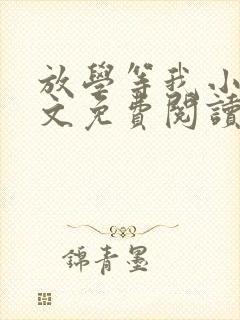 放學等我小
文免費閱讀
錦青墨